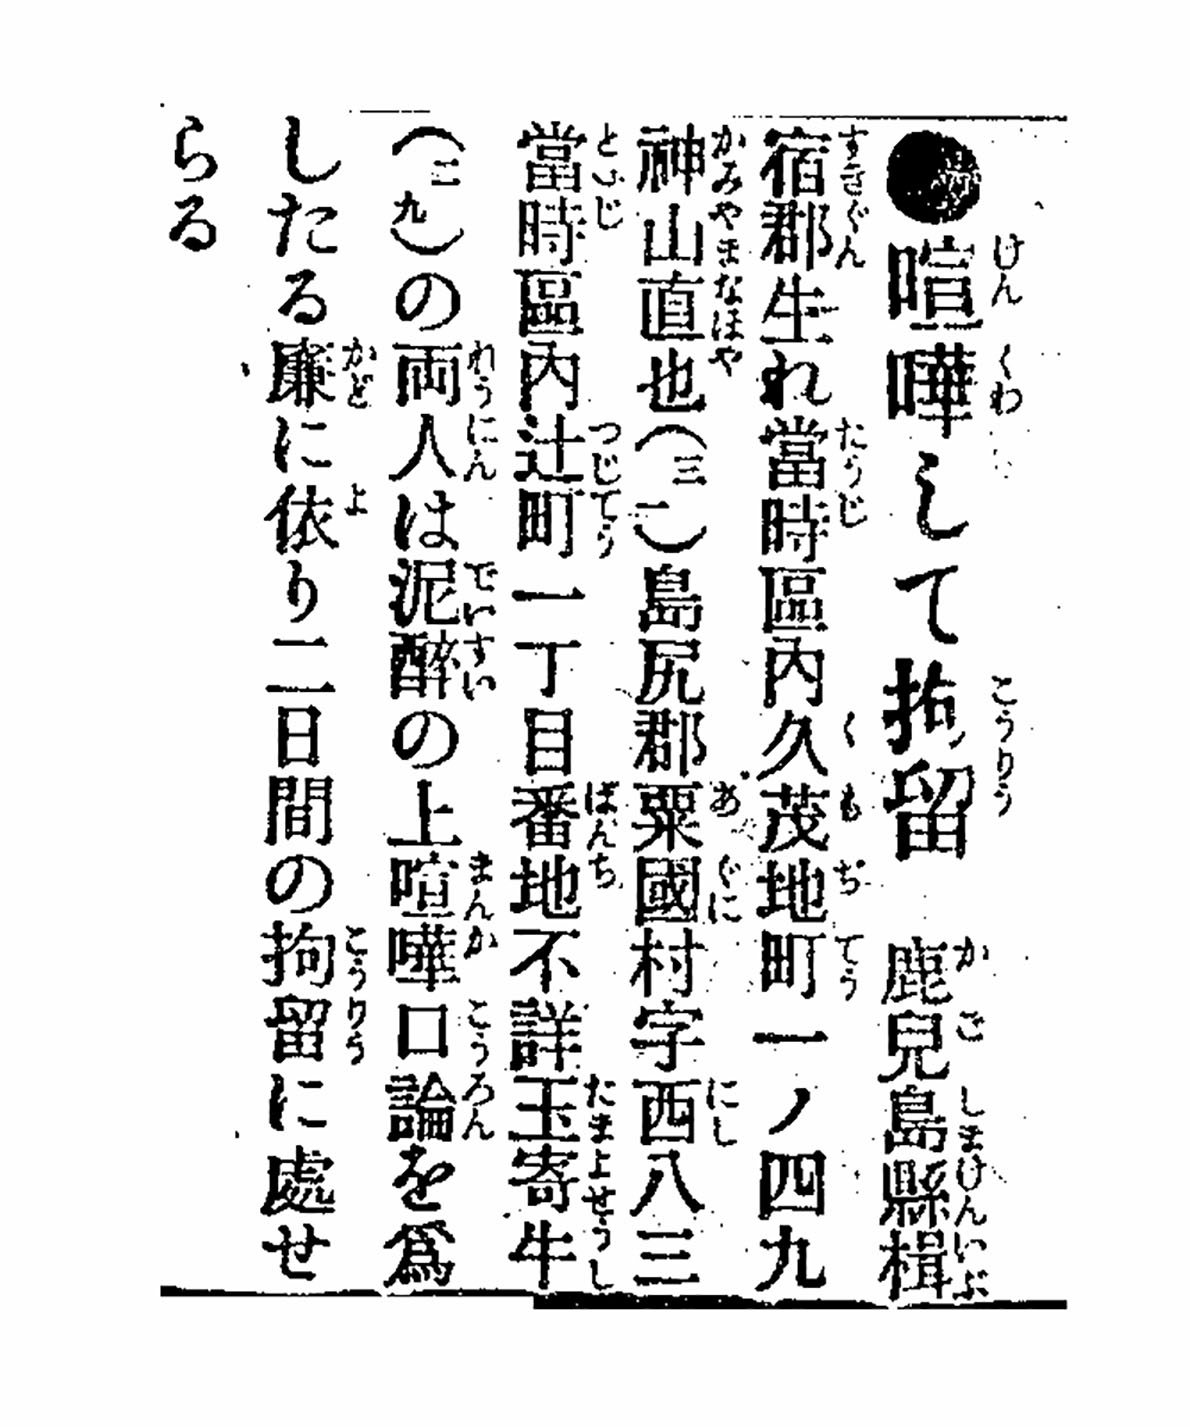 ●喧嘩して拘留　鹿兒島縣楫
宿郡生れ當時區內久茂地町一ノ四九
神山直也（三一）島尻郡粟國村字西八三
當時區內辻町一丁目番地不詳玉寄牛
（二九）の両人は泥醉の上喧嘩口論を爲
したる廉に依り二日間の拘留に處せ
らる